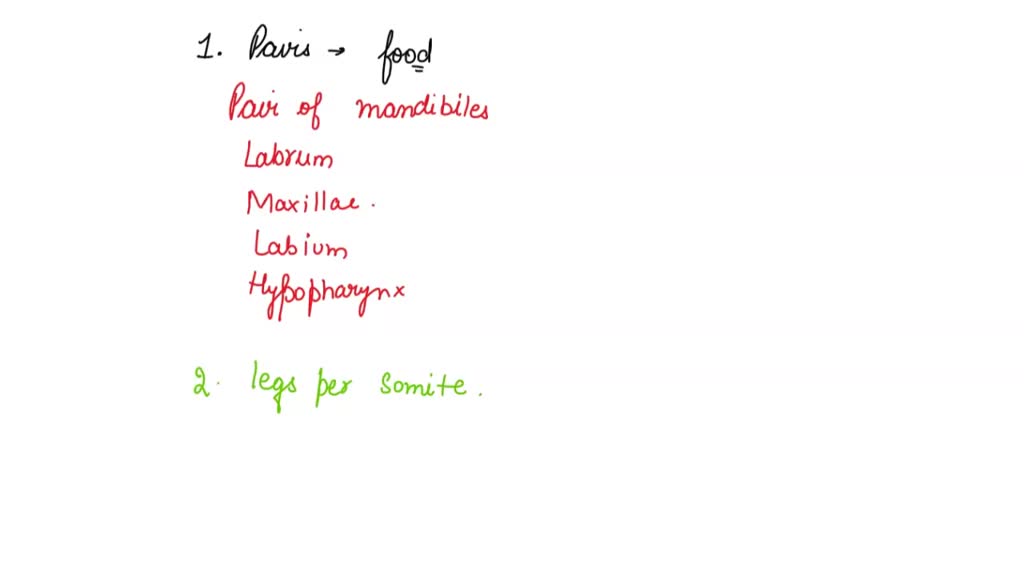 1. Pairs → food
Pair of mandibiles
Labrum
Maxillae.
Labium
Hypopharynx
2. legs per somite.